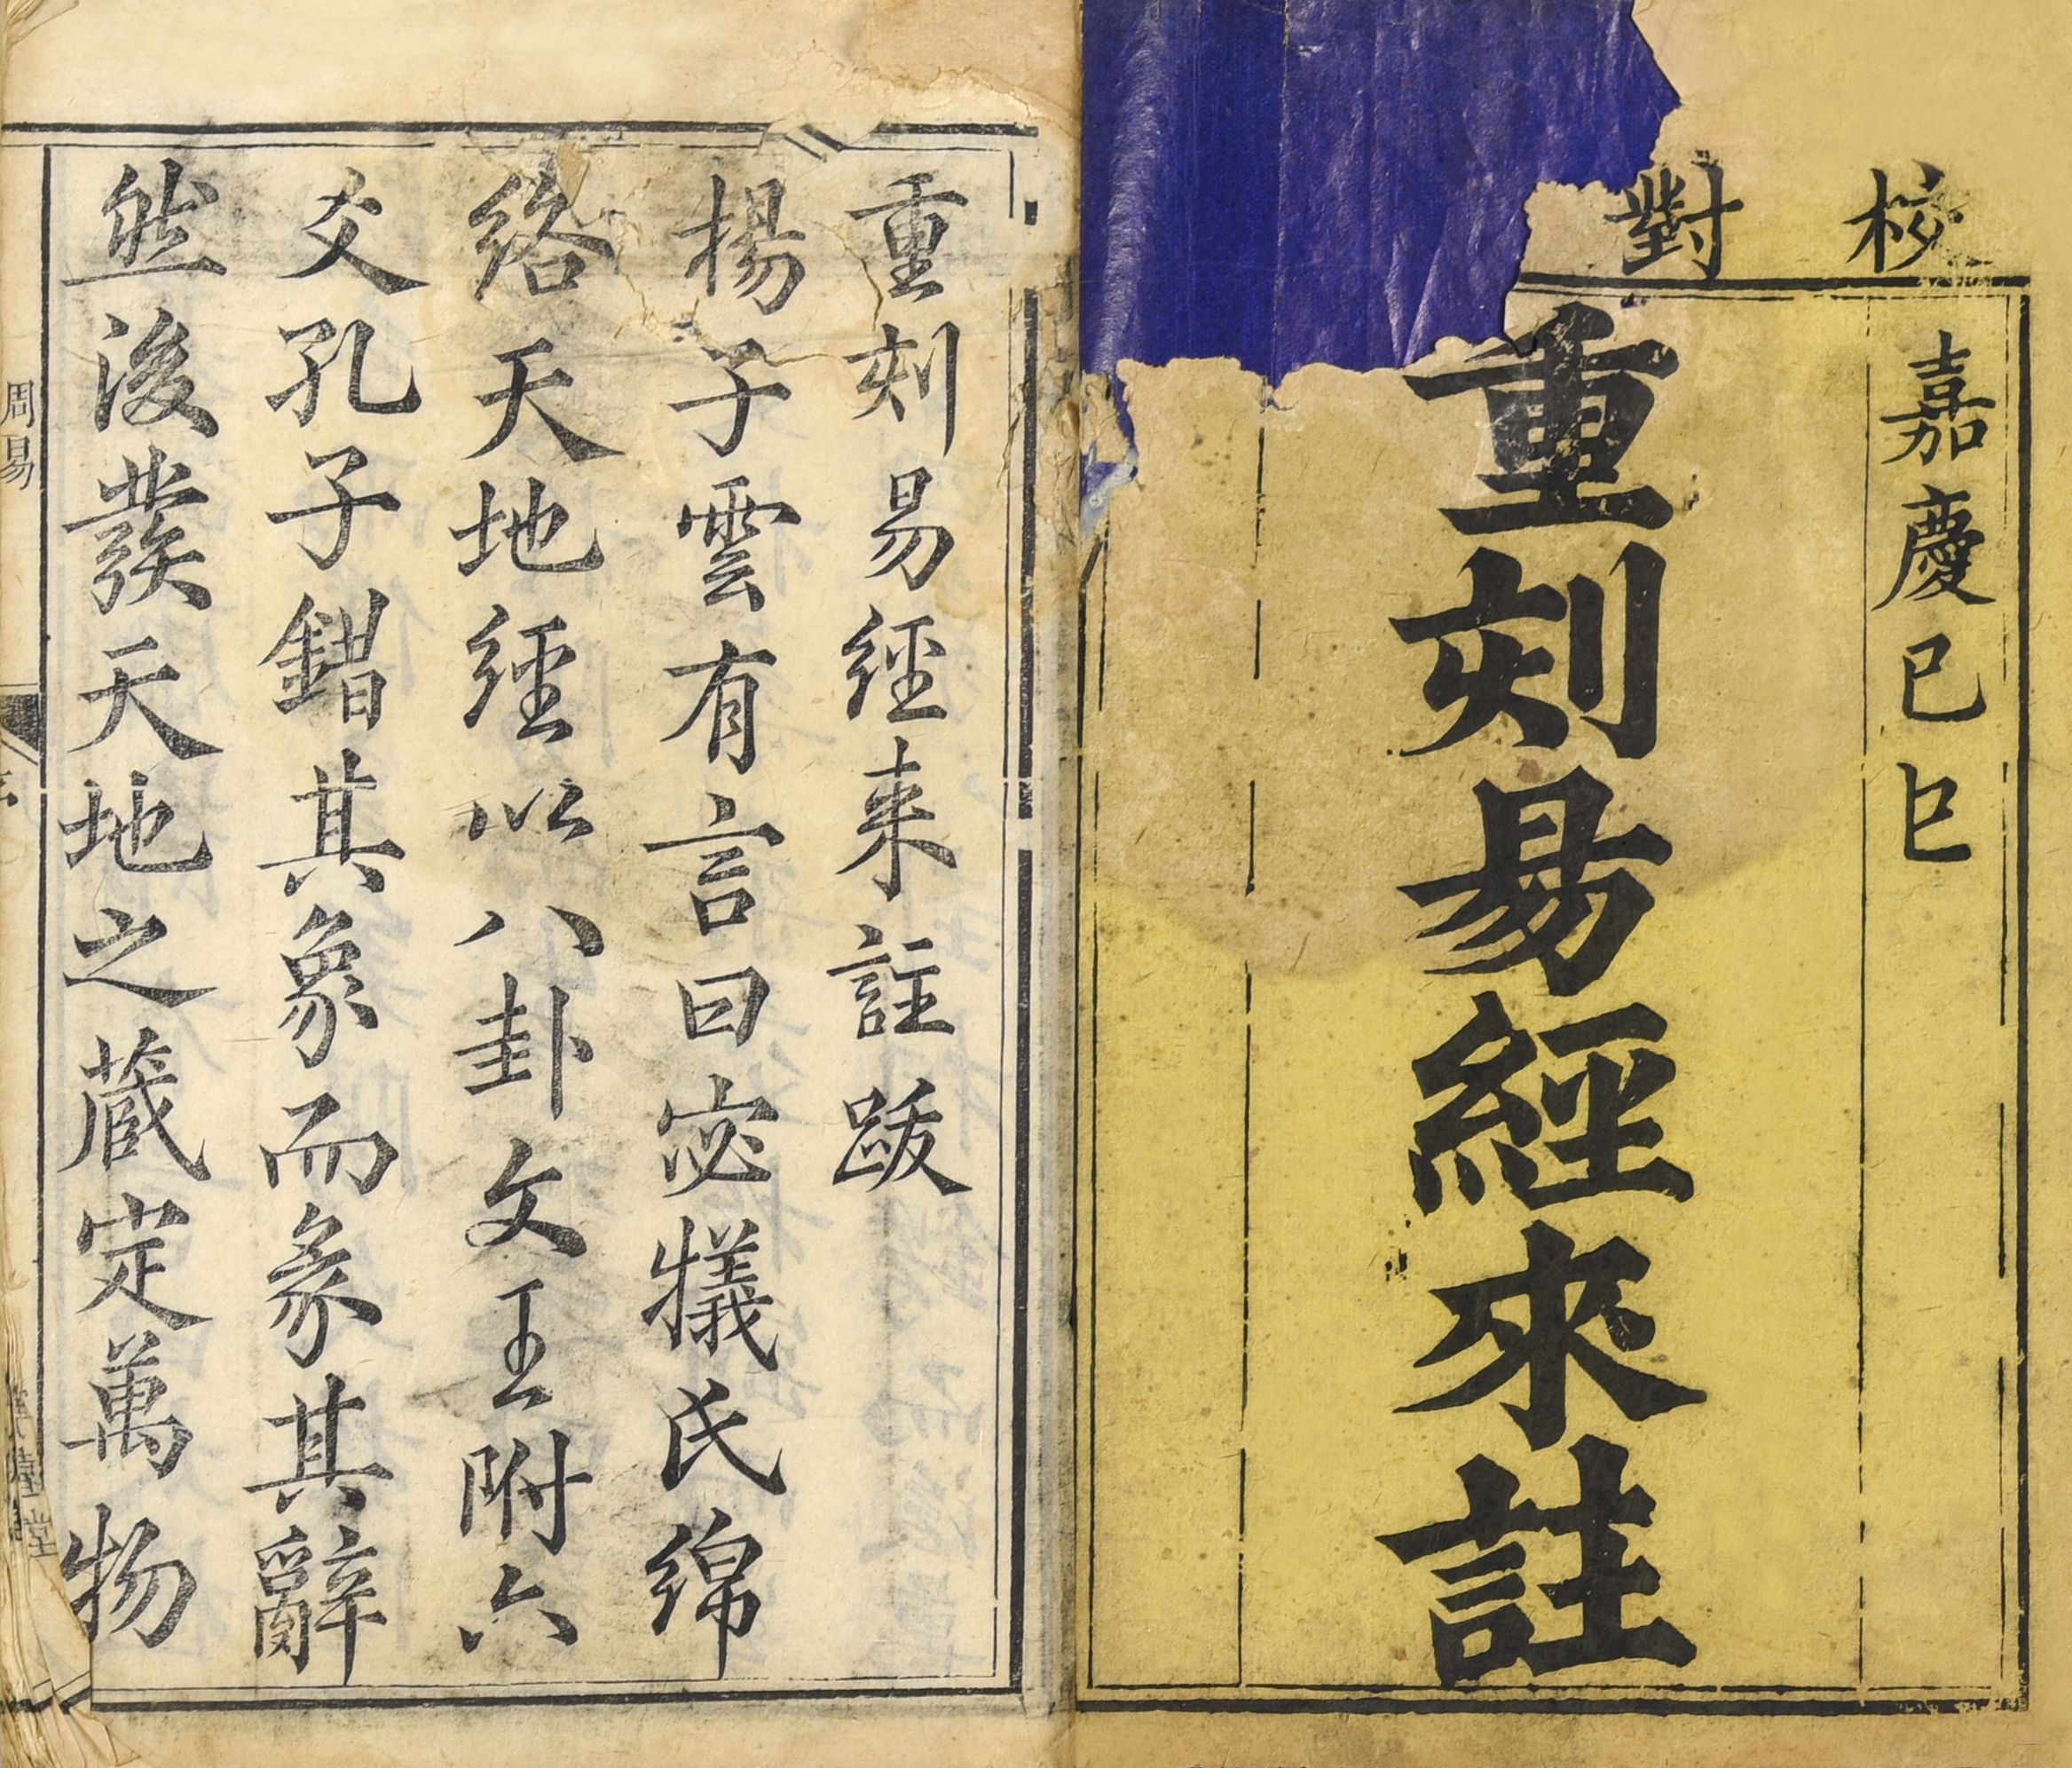 校對
嘉慶己巳
重刻易經來註
重刻易經来註跋
揚子雲有言曰宓犠氏綿
絡天地經以八卦文王附六
爻孔子錯其象而彖其辭
然後發天地之蔵定萬物
周易
堂